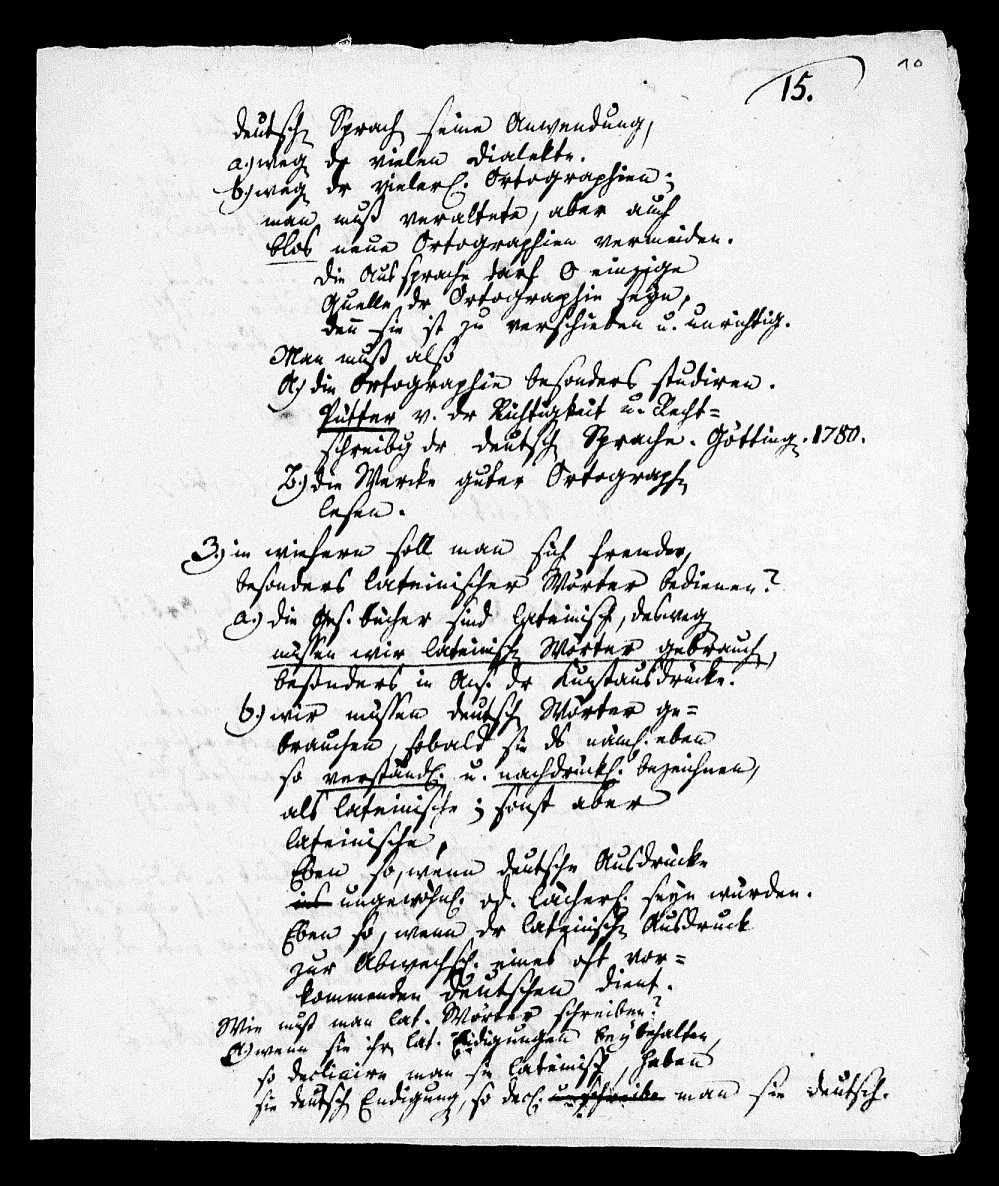 10
15.
deutsch Sprach seine Anwendung,
a.) weg dr vielen Dialekte.
b.) weg dr vielerl. Ortographien;
man muß veraltete, aber auch
blos neue Ortographien vermeiden.
die Aussprache darf 0 einzige
Quelle dr Ortographie seyn,
deñ sie ist zu verschieden u. unrichtig.
Man muß also
A.) die Ortographie besonders studiren.
Pütter v. dr Richtigkeit u. Recht-
schreibg dr deutsch Sprache. Götting. 1780.
B.) die Wercke guter Ortograph
lesen.
3.) in wiefern soll man sich fremder,
besonders lateinischer Wörter bedienen?
a.) die Ges. bücher sind lateinisch, desweg
müssen wir lateinisch Wörter gebrauch,
besonders in Ans. dr Kunstausdrücke.
b.) wir müssen deutsch Wörter ge-
brauchen, sobald sie ds näml. eben
so verständl. u. nachdrückl. bezeichnen,
als lateinische; sonst aber
lateinische,
Eben so, wenn deutsche Ausdrücke
ins ungewöhnl. od. lächerl. seyn würden.
Eben so, wenn dr lateinisch Ausdruck
zur Abwechsl. eines oft vor-
kommenden deutschen dient.
Wie muß man lat. Wörter schreiben?
A.) wenn sie ihr lat. Endigungen beybehalten,
so declinire man sie lateinisch, haben
sie deutsch Endigung, so decl. u. schreibe man sie deutsch.